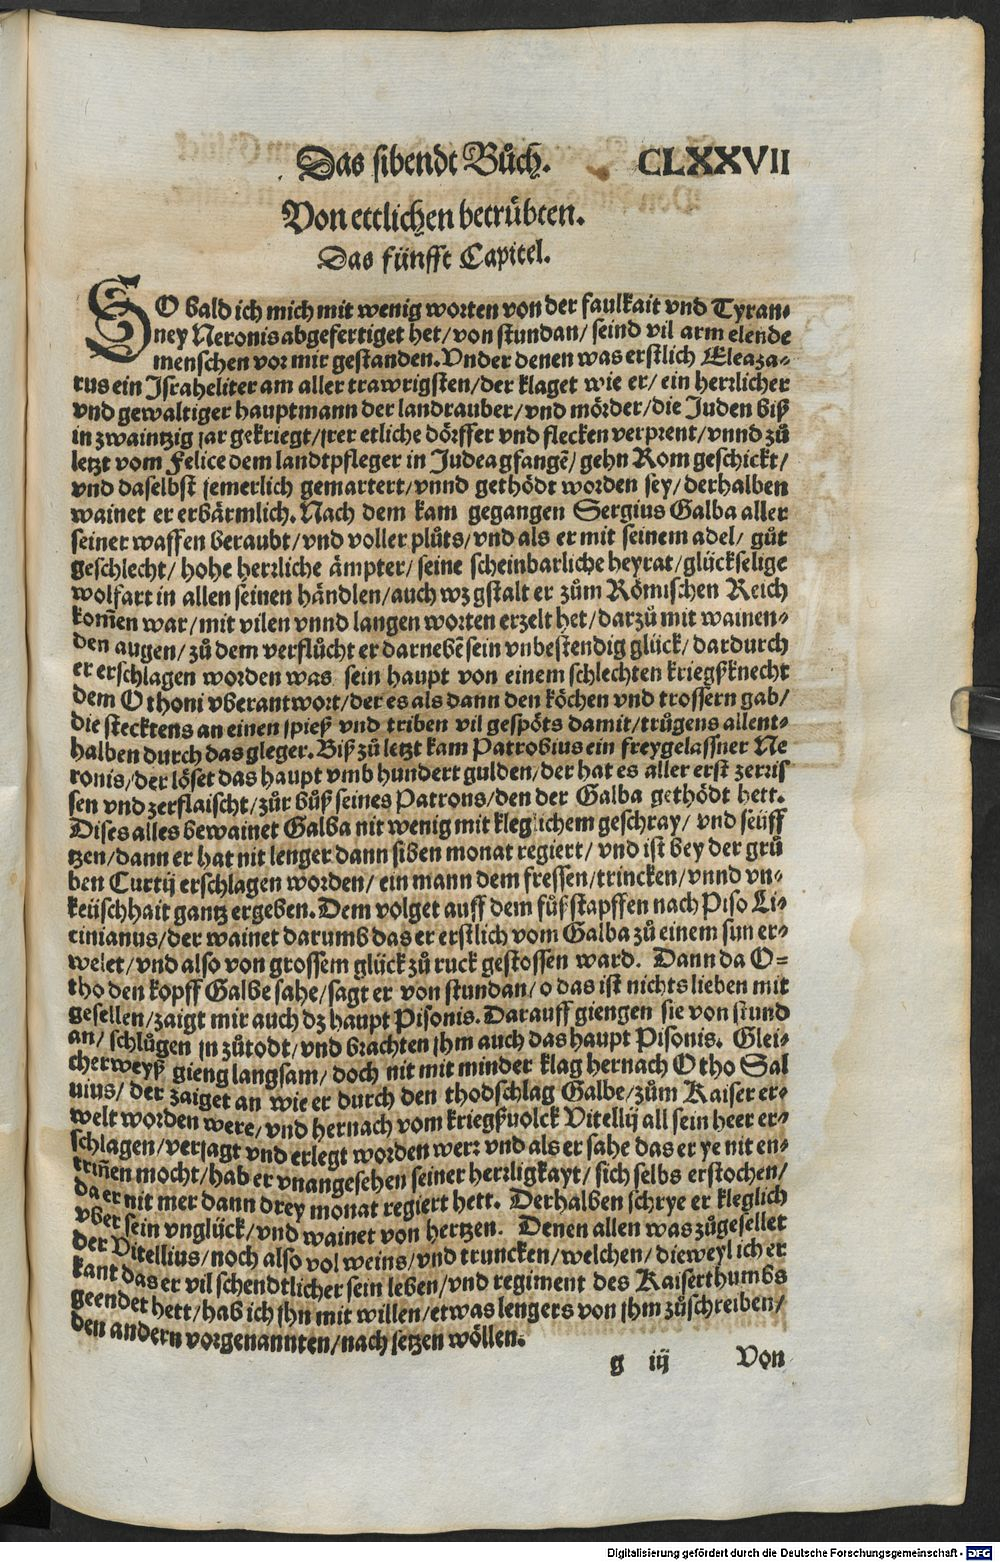 Das sibendt Bůch. CLXXVII
Von ettlichen betrübten.
Das fünfft Capitel.
SO bald ich mich mit wenig worten von der faulkait vnd Tyran⸗
ney Neronis abgefertiget het/ von stundan/ seind vil arm elende
menschen vor mir gestanden. Vnder denen was erstlich Eleaza⸗
rus ein Jsraheliter am aller trawrigsten/ der klaget wie er/ ein herrlicher
vnd gewaltiger hauptmann der landrauber/ vnd mörder/ die Juden biß
in zwaintzig jar gekriegt/ jrer etliche dörffer vnd flecken verprent/ vnnd zů
letzt vom Felice dem landtpfleger in Judea gfangē/ gehn Rom geschickt/
vnd daselbst jemerlich gemartert/ vnnd gethödt worden sey/ derhalben
wainet er erbärmlich. Nach dem kam gegangen Sergius Galba aller
seiner waffen beraubt/ vnd voller plůts/ vnd als er mit seinem adel/ gůt
geschlecht/ hohe herrliche ämpter/ seine scheinbarliche heyrat/ glückselige
wolfart in allen seinen händlen/ auch wz gstalt er zům Römischen Reich
kom̄en war/ mit vilen vnnd langen worten erzelt het/ darzů mit wainen⸗
den augen/ zů dem verflůcht er darnebē sein vnbestendig glück/ dardurch
er erschlagen worden was, sein haupt von einem schlechten kriegßknecht
dem Othoni vberantwort/ der es als dann den köchen vnd trossern gab/
die stecktens an einen spieß vnd triben vil gespöts damit/ trůgens allent⸗
halben durch das gleger. Biß zů letzt kam Patrobius ein freygelassner Ne
ronis/ der löset das haupt vmb hundert gulden/ der hat es aller erst zerris
sen vnd zerflaischt/ zůr bůß seines Patrons/ den der Galba gethödt hett.
Dises alles bewainet Galba nit wenig mit kleglichem geschray/ vnd seüff
tzen/ dann er hat nit lenger dann siben monat regiert/ vnd ist bey der grů
ben Curtij erschlagen worden/ ein mann dem fressen/ trincken/ vnnd vn⸗
keüschhait gantz ergeben. Dem volget auff dem fůßstapffen nach Piso Li⸗
cinianus/ der wainet darumb das er erstlich vom Galba zů einem sun er⸗
welet/ vnd also von grossem glück zů ruck gestossen ward. Dann da O⸗
tho den kopff Galbe sahe/ sagt er von stundan/ o das ist nichts lieben mit
gesellen/ zaigt mir auch dz haupt Pisonis. Darauff giengen sie von stund
an/ schlůgen jn zůtodt/ vnd brachten jhm auch das haupt Pisonis. Glei⸗
cherweyß gieng langsam/ doch nit mit minder klag hernach Otho Sal
uius/ der zaiget an wie er durch den thodschlag Galbe/ zům Kaiser er⸗
welt worden were/ vnd hernach vom kriegßuolck Vitellij all sein heer er⸗
schlagen/ verjagt vnd erlegt worden wer: vnd als er sahe das er ye nit en⸗
trin̄en mocht/ hab er vnangesehen seiner herrligkayt/ sich selbs erstochen/
da er nit mer dann drey monat regiert hett. Derhalben schrye er kleglich
vber sein vnglück/ vnd wainet von hertzen. Denen allen was zůgesellet
der Vitellius/ noch also vol weins/ vnd truncken/ welchen/ dieweyl ich er
kant das er vil schendtlicher sein leben/ vnd regiment des Kaiserthumbs
geendet hett/ hab ich jhn mit willen/ etwas lengers von jhm zůschreiben/
den andern vorgenannten/ nach setzen wöllen.
g iij Von
Digitalisierung gefördert durch die Deutsche Forschungsgemeinschaft - DFG